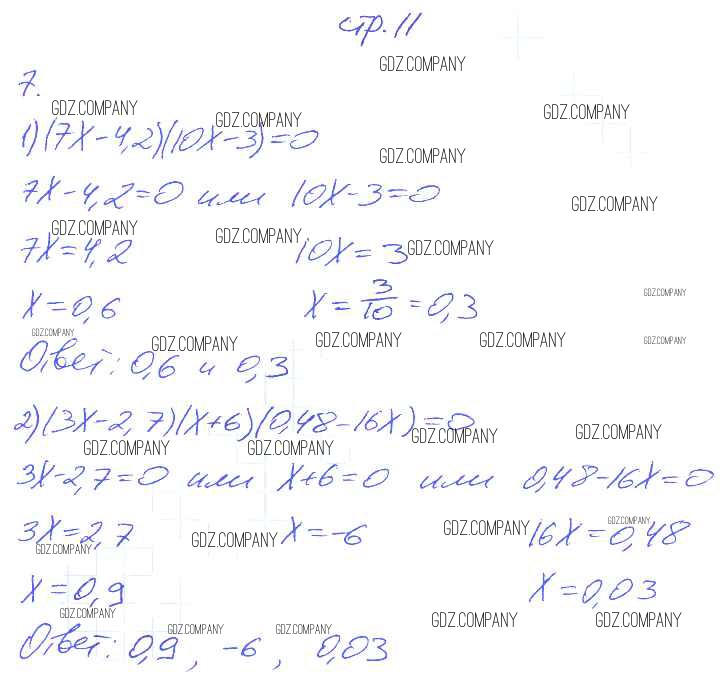 стр. 11
GDZ.COMPANY
7.
GDZ.COMPANY GDZ.COMPANY GDZ.COMPANY
1) (7x-4,2)(10x-3)=0
GDZ.COMPANY
7x-4,2=0 или 10x-3=0
GDZ.COMPANY
GDZ.COMPANY GDZ.COMPANY GDZ.COMPANY
7x=4,2 10x=3
GDZ.COMPANY
x=0,6 x=3/10=0,3
GDZ.COMPANY GDZ.COMPANY GDZ.COMPANY GDZ.COMPANY GDZ.COMPANY
Ответ: 0,6 и 0,3
2) (3x-2,7)(x+6)(0,48-16x)=0
GDZ.COMPANY GDZ.COMPANY GDZ.COMPANY GDZ.COMPANY
3x-2,7=0 или x+6=0 или 0,48-16x=0
GDZ.COMPANY GDZ.COMPANY GDZ.COMPANY GDZ.COMPANY
3x=2,7 x=-6 16x=0,48
x=0,9 x=0,03
GDZ.COMPANY GDZ.COMPANY GDZ.COMPANY
GDZ.COMPANY GDZ.COMPANY
Ответ: 0,9, -6, 0,03